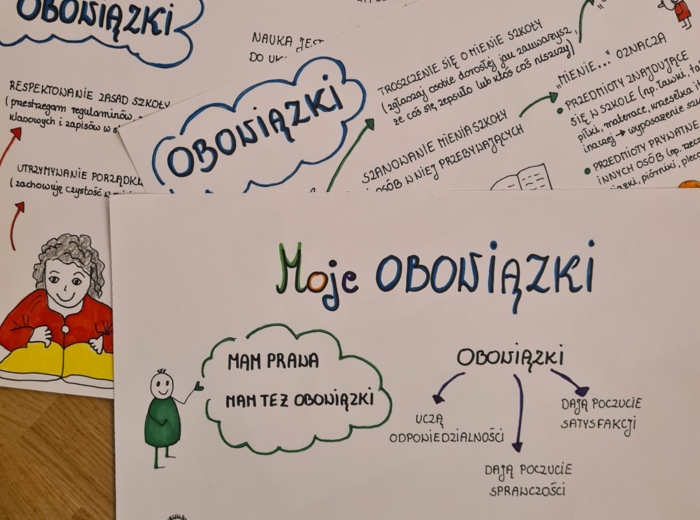 OBOWIĄZKI
NAUKA JEST
DO
RESPEKTOWANIE ZASAD SZKOŁY
(przestrzegam regulaminów,
klasowych i zapisów w
UTRZYMYWANIE PORZĄDKU
(zachowuję czystość
OBOWIĄZKI
TROSZCZENIE SIĘ O MIENIE SZKOŁY
(zgłaszaj osobie dorosłej jak zauważysz,
że coś się zepsuło lub ktoś coś niszczy)
SZANOWANIE MIENIA SZKOŁY
OSÓB W NIEJ PRZEBYWAJĄCYCH
"MIENIE..." OZNACZA
• PRZEDMIOTY ZNAJDUJĄCE
SIĘ W SZKOLE (np. ławki,
piłki, materace, krzesełka
inaczej → wyposażenie
• PRZEDMIOTY PRYWATNE
INNYCH OSÓB (np.
piórniki,
Moje OBOWIĄZKI
MAM PRAWA
MAM TEŻ OBOWIĄZKI
OBOWIĄZKI
UCZĄ
ODPOWIEDZIALNOŚCI
DAJĄ POCZUCIE
SPRAWCZOŚCI
DAJĄ POCZUCIE
SATYSFAKCJI